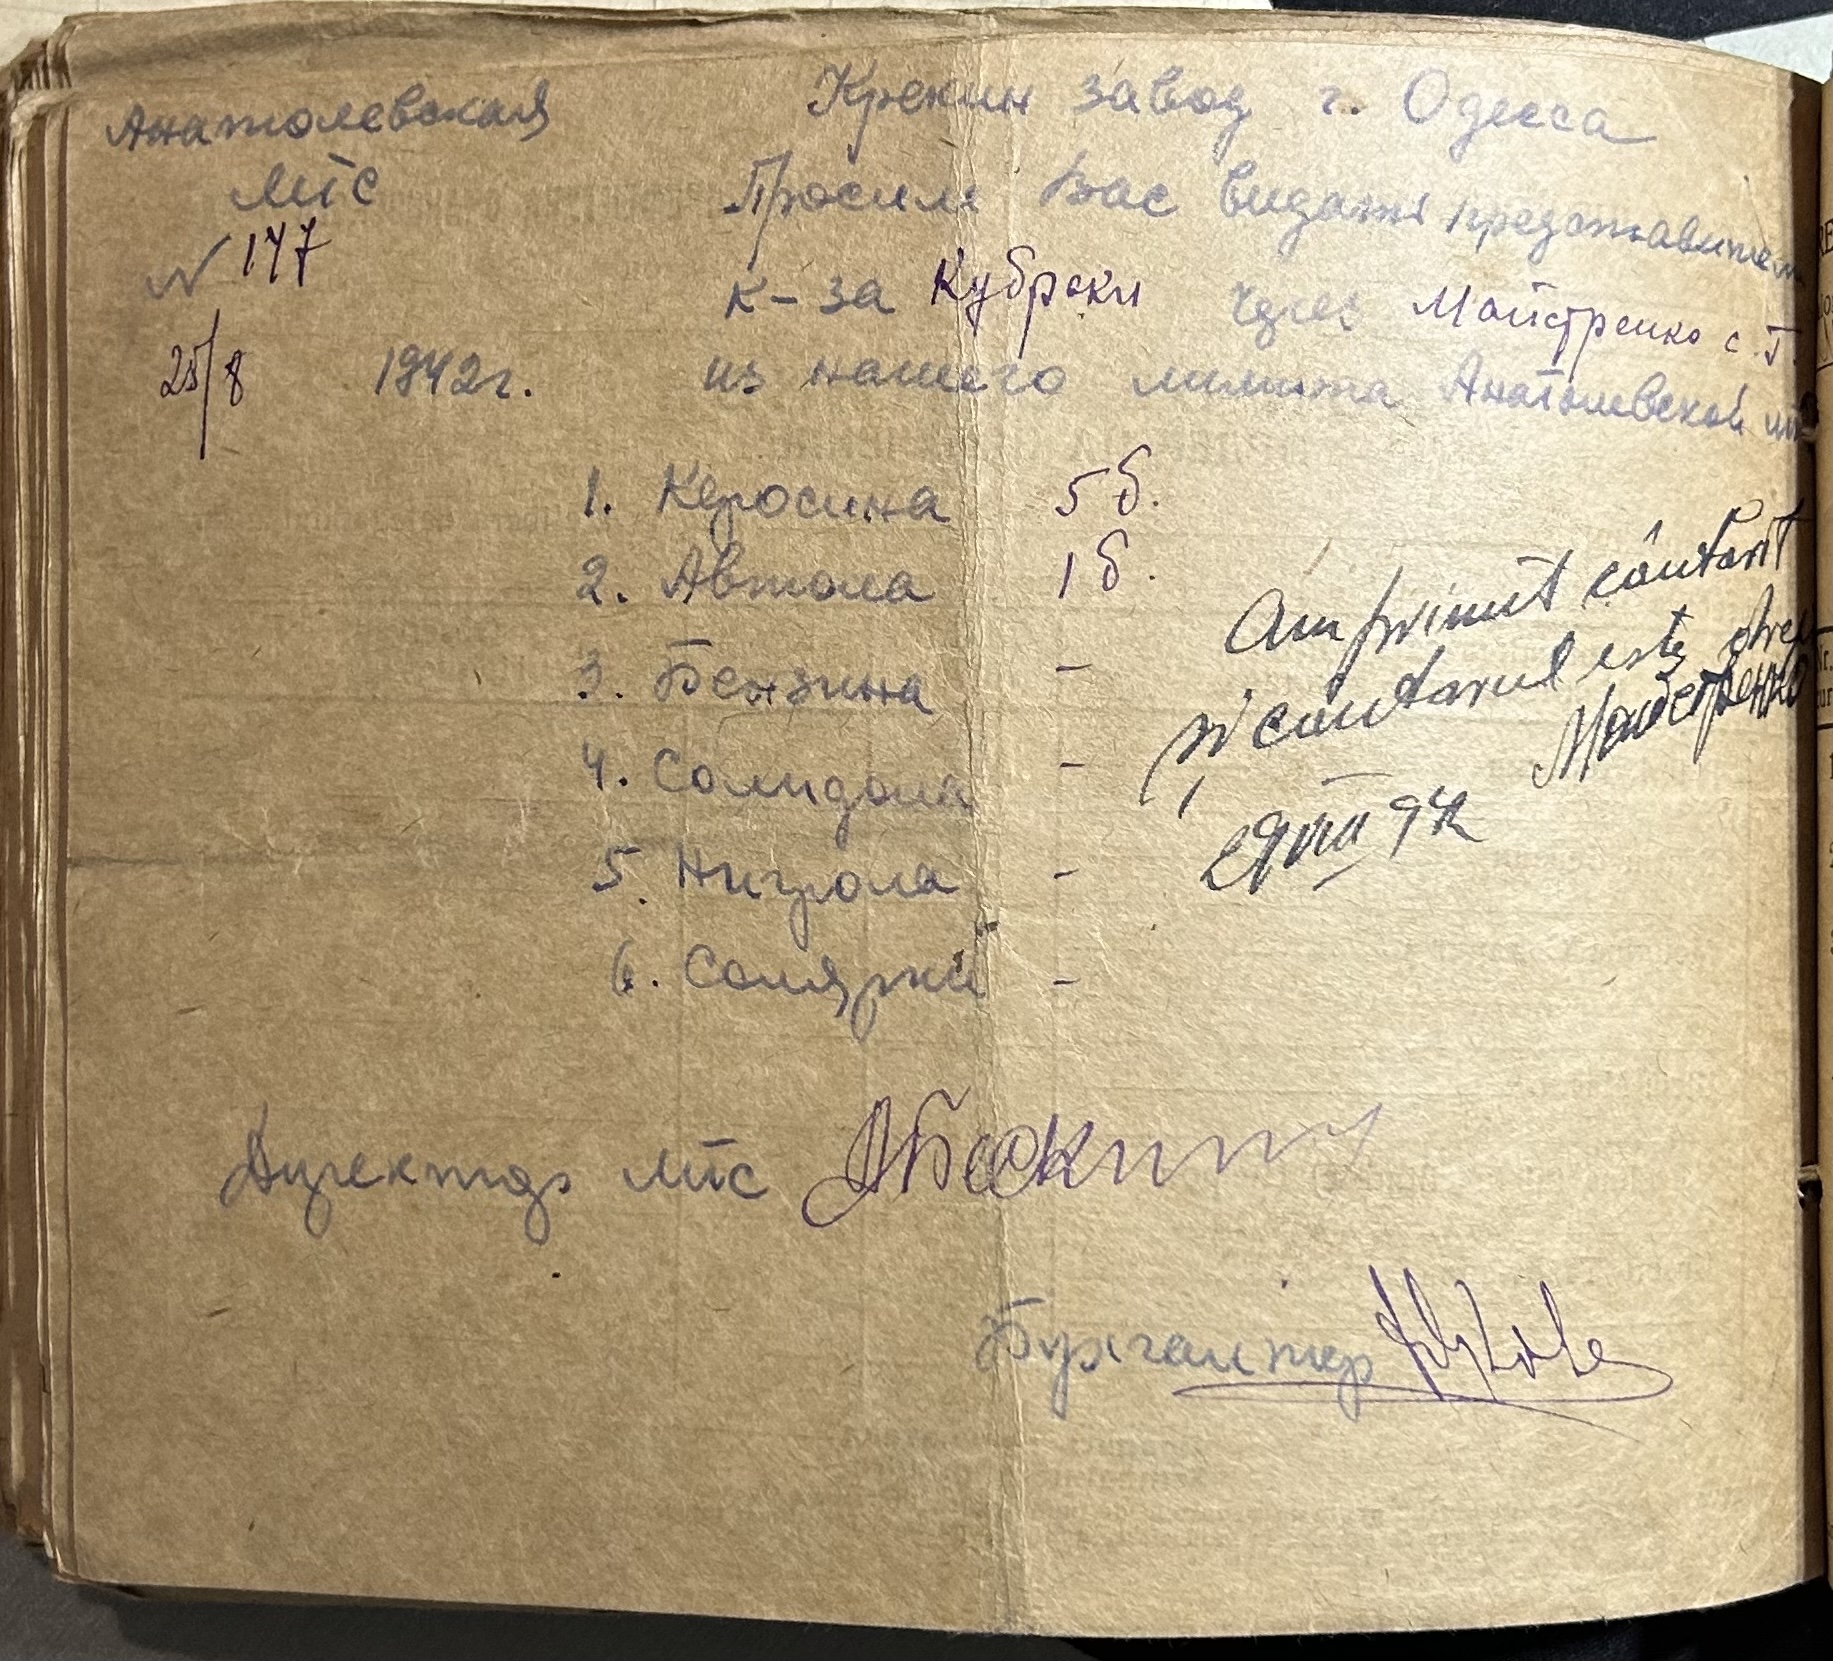 Анатолевская
МТС
N 147
25/8 1942г.
Крекин завод г. Одесса
Просим Вас видати представителю
к-за Кубряки через Майстренко с. Г.
из нашего лимита Анатолевской МТС
1. Керосина 5 б.
2. Автола 1 б.
3. Бензина -
4. Солидола -
5. Нигрола -
6. Солярки -
Am primit cântarit
și cântarul este drept
Майстренко
29 VIII 942
Директор МТС
Бухгалтер